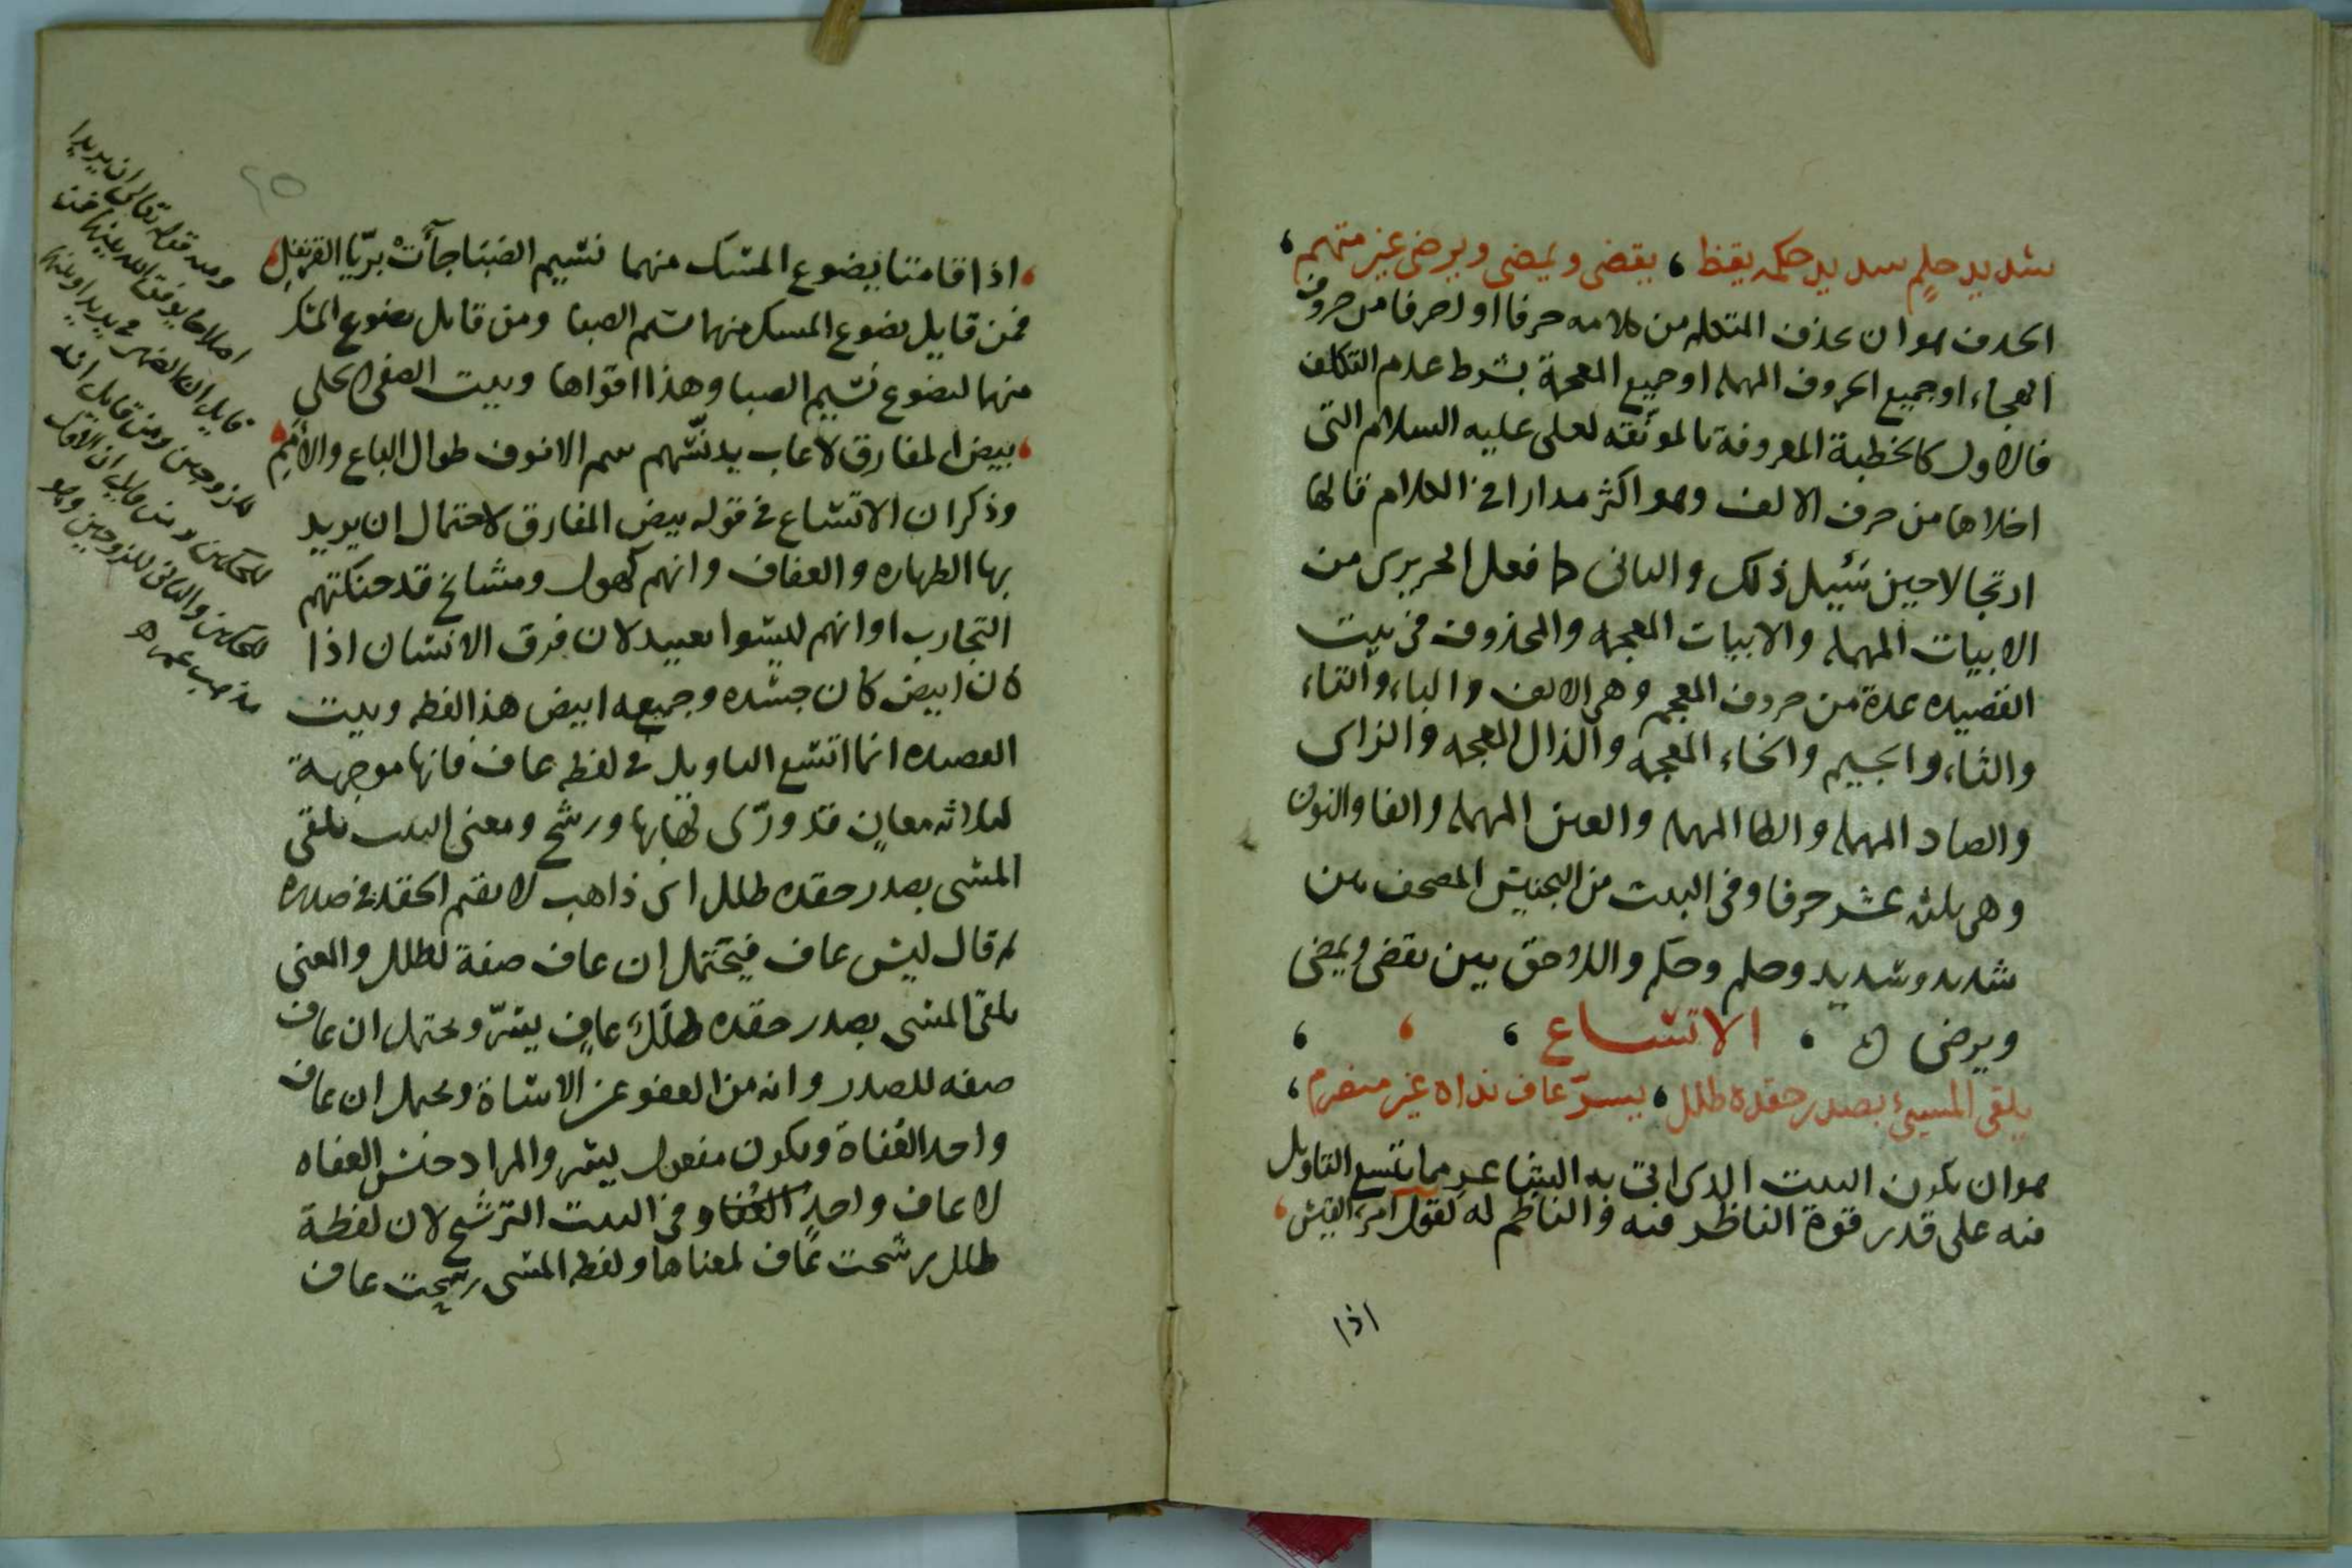 شديد حلم سديد حكمه يقظ ، يقضى ويمضى ويرضى غير متهم ،
الحدف هو ان يحذف المتكلم من كلامه حرفا او احرفا من حروف
الهجاء او جميع الحروف المهمله او جميع المعجمة بشرط عدم التكلف
فالاول كالخطبة المعروفة بالمونقه لعلى عليه السلام التى
اخلاها من حرف الالف وهو اكثر مدارا فى الكلام قالها
ارتجالا حين سُيل ذلك والثانى كما فعل الحريرى من
الابيات المهمله والابيات المعجمه والمحذوف فى بيت
القصيده عدة من حروف المعجم وهى الالف والباء والتاء
والثاء والجيم والخاء المعجمه والذال المعجمه والزاى
والصاد المهمله والطا المهمله والعين المهمله والفا والنون
وهى ثلثه عشر حرفا وفى البيت من التجنيس المصحف بين
شديد وسديد وحلم وحكم واللاحق بين يقضى ويمضى
ويرضى ، الاتساع ، ، ،
يلقى المسيء بصدر حقده طلل ، يسرّ عاف نداه غير منصرم ،
هو ان يكون البيت الدى اتى به الشاعر مما يتسع التاويل
فيه على قدر قوة الناظر فيه والناظم له كقول امرء القيس ،
اذا
، اذا قامتا يضوع المسك منهما نسيم الصبا جآت بريّا القرنفل ،
فمن قايل يضوع المسك منهما نسيم الصبا ومن قايل يضوع المسك
منهما لتضوع نسيم الصبا وهذا اقواها وبيت الصفى الحلى
، بيض المفارق لا عاب يدنسهم شم الانوف طوال الباع والأمم ،
وذكر ان الاتساع فى قوله بيض المفارق لاحتمال ان يريد
بها الطهاره والعفاف وانهم كهول ومشائخ قد حنكتهم
التجارب او انهم ليسوا بعبيد لان فرق الانسان اذا
كان ابيض كان جسده وجميعه ابيض هذا لفظه وبيت
القصيده انما اتسع التاويل فى لفظه عاف فانها موجهة
لثلاثه معانٍ قد ورّى بها ورشح ومعنى البيت يلقى
المسى بصدر حقده طلل اى ذاهب لا يقيم الحقد فى صدره
ثم قال ليس عاف فيحتمل ان عاف صفة لطلل والمعنى
يلقى المسى بصدر حقده طلل عافٍ يسرّ ويحتمل ان عاف
صفه للصدر وانه من العفو عن الاساة ويحتمل ان عاف
واحد العُفاة ويكون مفعول يسر والمراد جنس العفاه
لا عاف واحدٍ العُفا وفى البيت الترشيح لان لفظة
طلل رشحت عاف لمعناها ولفظه المسى رشحت عاف
ومنه قوله تعالى ان يريدا
اصلاحا يوفق الله بينهما فمن
قايل ان الضمير فى يريدا وبينهما
للزوجين ومن قايل انه
للحكمين ومن قايل ان الاول
للحكمين والثانى للزوجين وهو